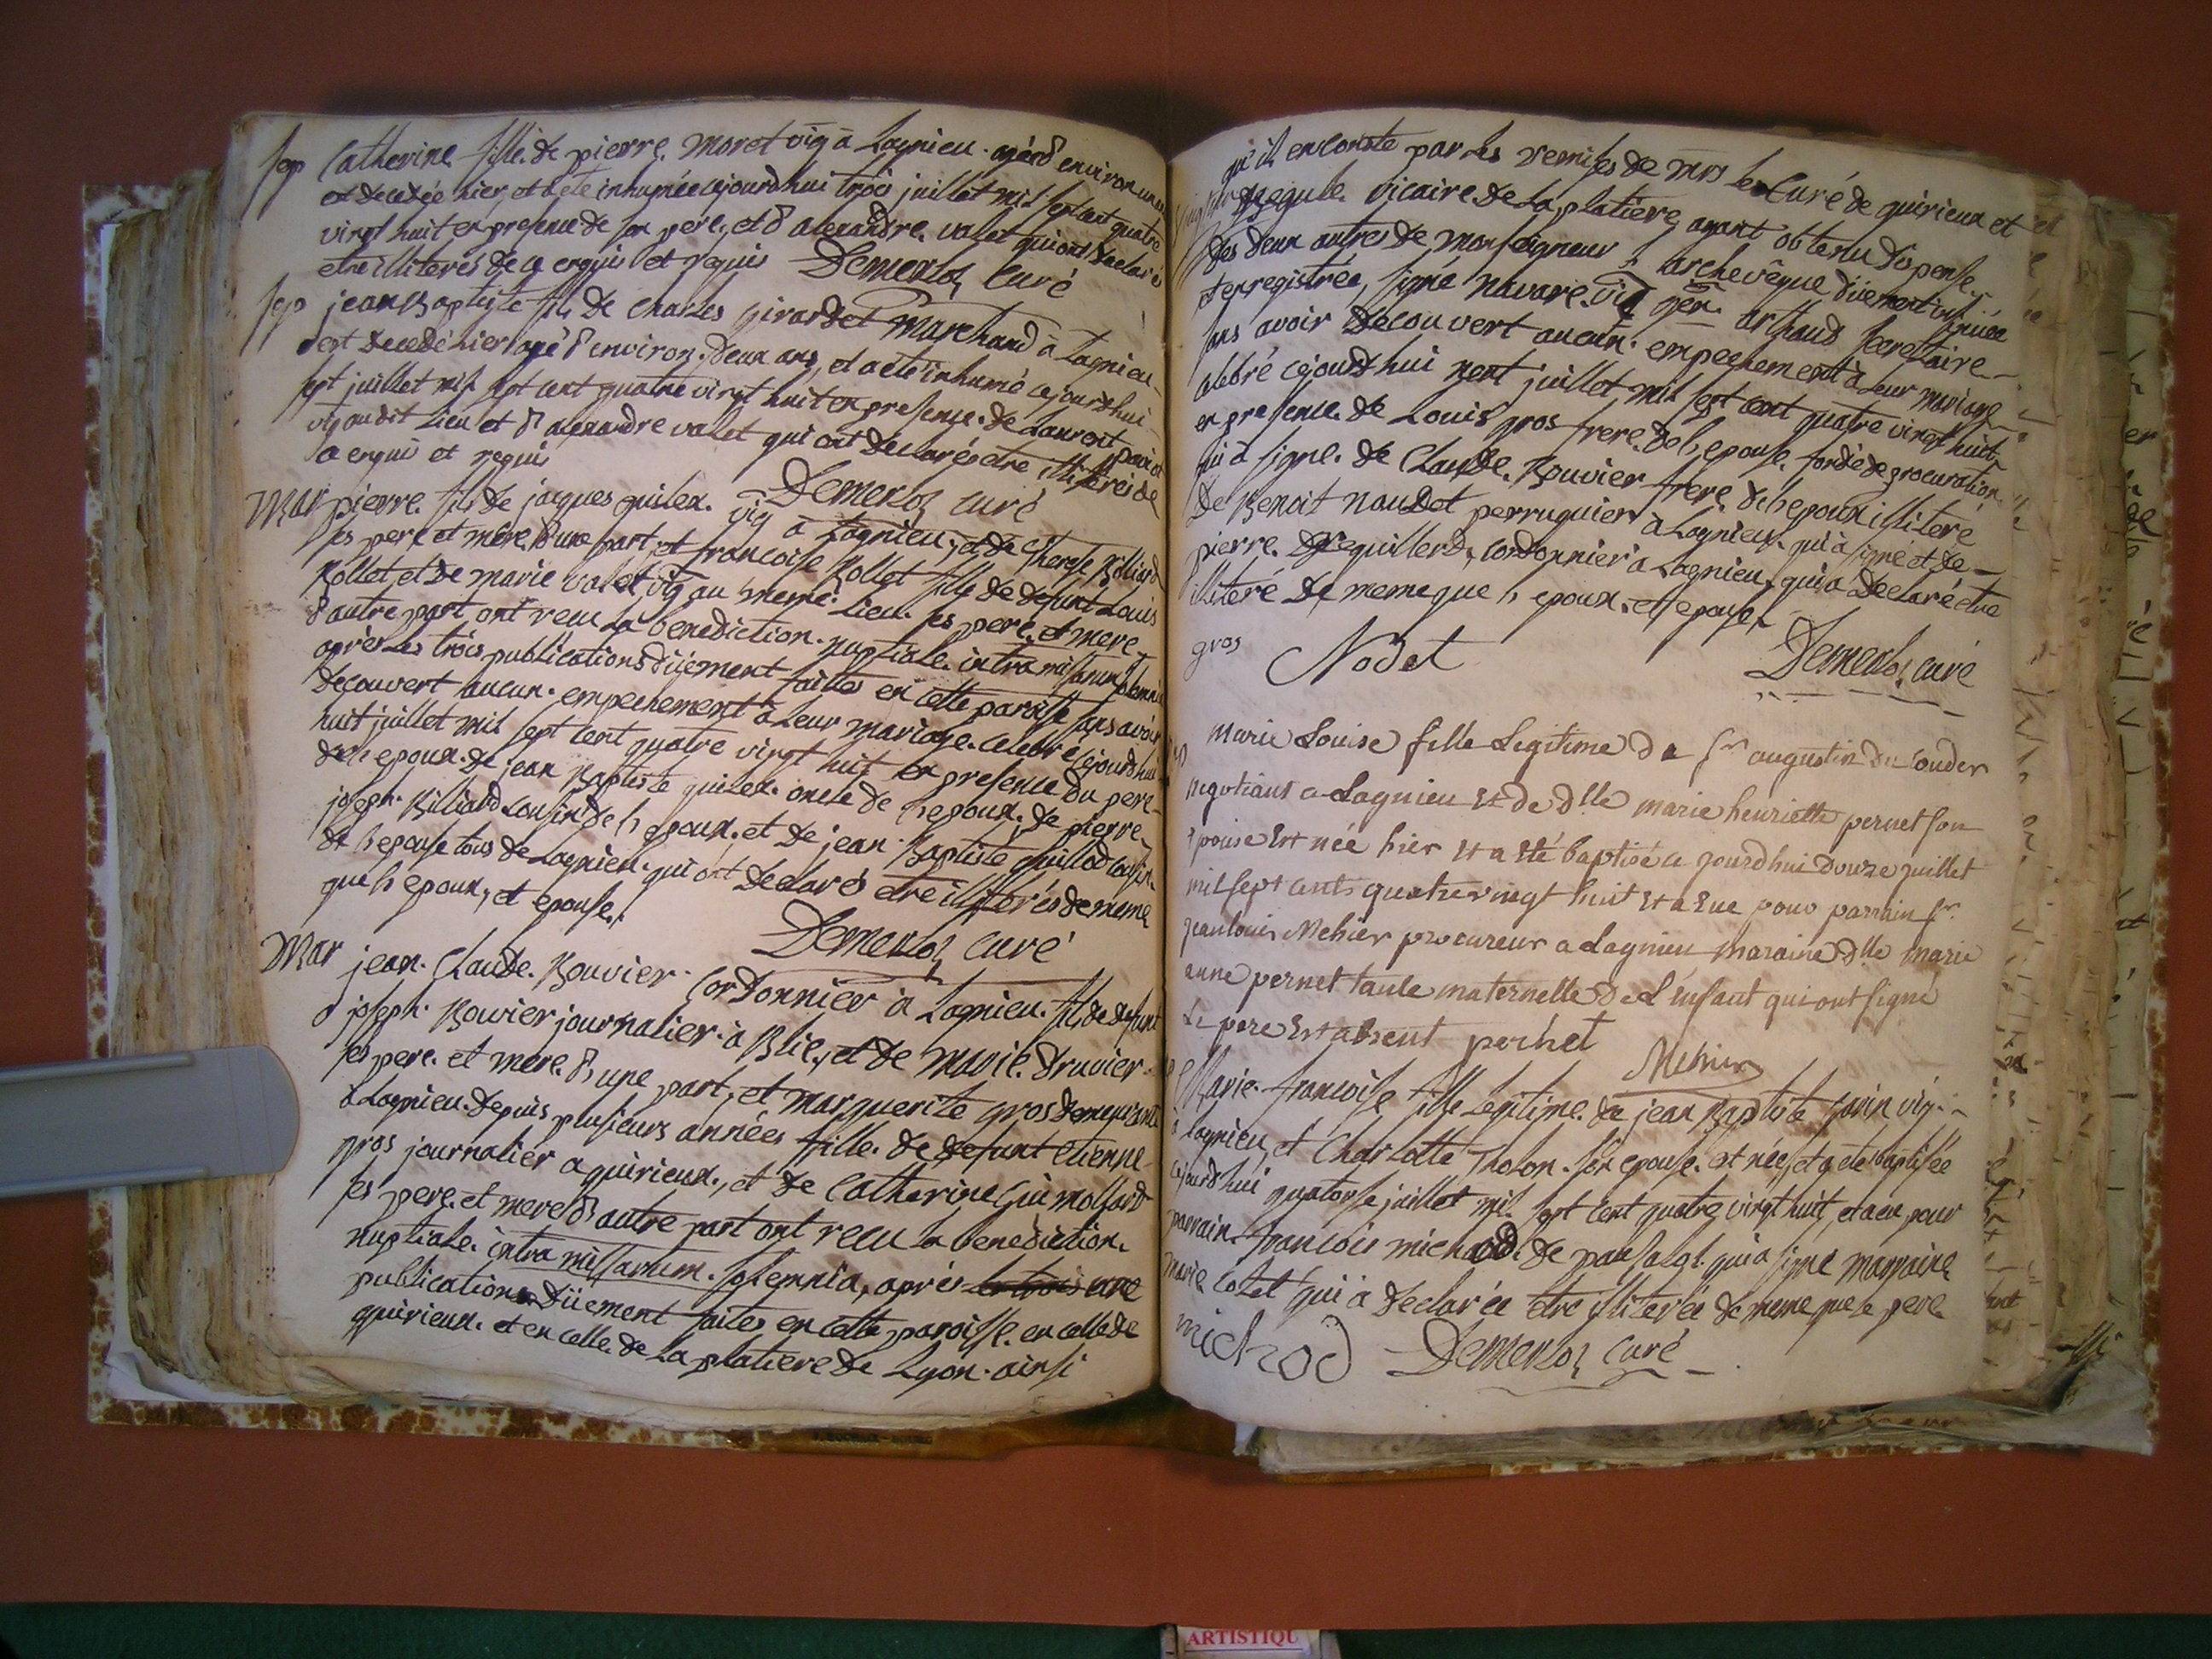 sep Catherine fille de pierre moret vig à Lagnieu agée d environ un an
est decedée hier, et a été inhumée cejourdhui trois juillet mil sept cent quatre
vingt huit en presence de son pere, et d alexandre valet qui ont declaré
etre illiteres de ce enquis et requis Demerloz curé
sep jean Baptiste fils de Charles girardet marchand à Lagnieu
est decedé hier agé d environ deux ans, et a été inhumé cejourdhui
sept juillet mil sept cent quatre vingt huit en presence de Laurent
vig audit Lieu et d alexandre valet qui ont declarés etre illiterés de
ce enquis et requis
Demerloz curé
Mar pierre fils de jacques guilex vig à Lagnieu, et de therese Billiard
ses pere et mere d une part, et francoise Rollet fille de defunt Louis
Rollet, et de marie valet vig au meme Lieu ses pere, et mere
d autre part ont recu La benediction nuptiale intra missarum solemnia
après Les trois publications düement faites en cette paroisse sans avoir
decouvert aucun empechement à Leur mariage celebré cejourdhui
huit juillet mil sept cent quatre vingt huit en presence du pere
de l epoux de jean Baptiste guilex oncle de l epoux, de pierre
joseph Billiard cousin de l epoux, et de jean Baptiste guillod cousin
de l epouse tous de Lagnieu qui ont declarés etre illiterés de meme
que l epoux, et epouse
Demerloz curé
Mar jean Claude Bouvier Cordonnier à Lagnieu fils de defunt
joseph Bouvier journalier à Blie, et de marie druvier
ses pere et mere d une part, et marguerite gros demeurante
à Lagnieu depuis plusieurs années fille de defunt Etienne
gros journalier a quirieux, et de Catherine Guimollard
ses pere et mere d autre part ont recu La benediction
nuptiale intra missarum solemnia, après les trois une
publication düement faites en cette paroisse en celle de
quirieux et en celle de La platiere de Lyon ainsi
qu il en conste par Les remises de mrs Les Curé de quirieux et
vicaire de La platiere, ayant obtenu dispense
des deux autres de monseigneur L archevêque düement insinuée
et enregistrée, signe navare vic gen. arthaud secretaire
sans avoir decouvert aucun empechement à Leur mariage
celebré cejourdhui neuf juillet mil sept cent quatre vingt huit
en presence de Louis gros frere de l epouse fondé de procuration
qui à signe de Claude Bouvier frere de l epoux illiteré
de Benoit naudet perruquier à Lagnieu qui à signé et de
pierre dreguillerd, cordonnier à Lagnieu, qui à declaré etre
illiteré de meme que l epoux, et epouse
gros Nodet Demerloz curé
Marie Louise fille Legitime de Sr augustin du Couder
negotiant a Lagnieu et de dlle marie henriette pernet son
epouse Est née hier et a eté baptisée ce jourd'hui Douze juillet
mil sept cents quatre vingt huit et a Eue pour parrain Sr
jean louis Mehier procureur a Lagnieu Maraine dlle Marie
anne pernet tante maternelle de L'enfant qui ont signé
Le pere Est absent pernet Mehier
Marie francoise fille Legitime de jean Baptiste gavin vig
à Lagnieu, et Charlotte Tholon son epouse est née, et a eté baptisée
cejourdhui quatorse juillet mil sept cent quatre vingt huit, et a eu pour
parrain francois michaud de qui a signe marraine
marie Colet qui à declarée etre illiterée de meme que le pere
michod Demerloz curé
ARTISTIQU